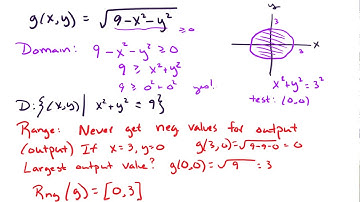 g(x,y) = √9-x²-y² ≥0
Domain: 9-x²-y² ≥ 0
9 ≥ x²+y²
9 ≥ 0²+0² yes!
D: {(x,y) | x²+y² = 9}
y
3
3
x
x²+y² = 3²
test: (0,0)
Range: Never get neg values for output
(output) If x=3, y=0 g(3,0)=√9-9-0 = 0
Largest output value? g(0,0)=√9 = 3
Rng(g) = [0,3]